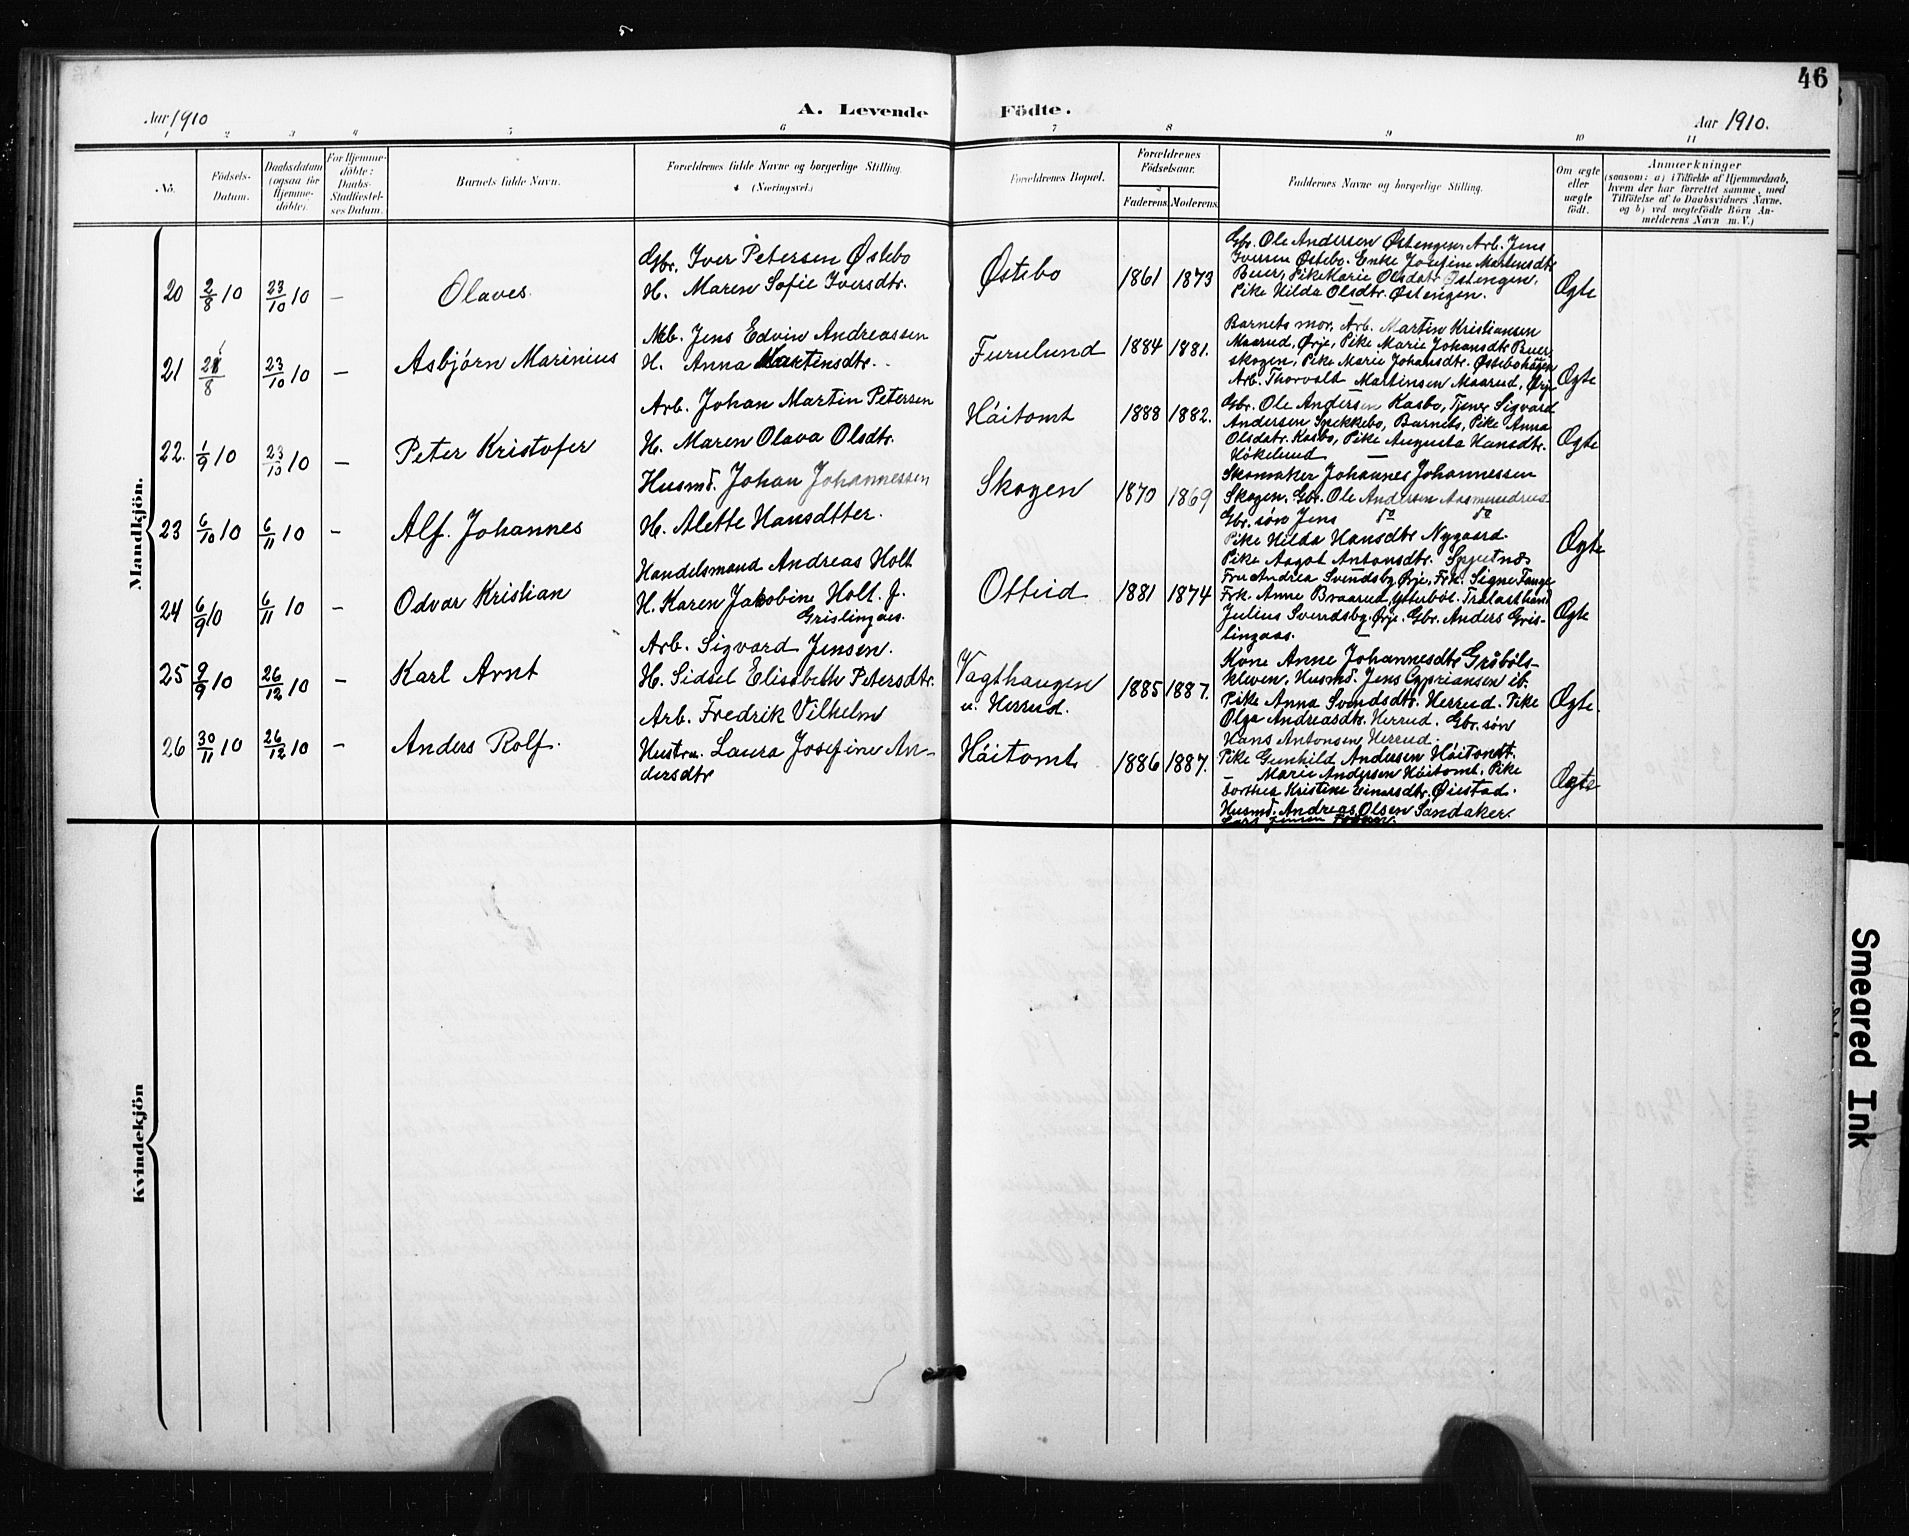 46
Aar 1910
A. Levende Födte.
Aar 1910.
1 2 3 4 5 6 7 8 9 10 11
No.
Födsels-
Datum.
Daabsdatum
(ogsaa for
Hjemme-
döbte).
For Hjemme-
döbte:
Daabs-
Stadfæstel-
ses Datum.
Barnets fulde Navn.
Forældrenes fulde Navne og borgerlige Stilling
(Næringsvei.)
Forældrenes Bopæl.
Forældrenes
Födselsaar.
Faderens. Moderens.
Faddernes Navne og borgerlige Stilling.
Om ægte
eller
uægte
födt.
Anmærkninger
(saasom: a) i Tilfælde af Hjemmedaab,
hvem der har forrettet samme, med
Tilföielse af to Daabsvidners Navne,
og b) ved uægtefödte Börn An-
melderens Navn m. V.)
Mandkjön.
20 2/8 10 23/10 10 — Olaves.
Gbr. Iver Petersen Østebo
H. Maren Sofie Iversdtr.
Østebo 1861 1873
Gbr. Ole Andersen Østengen, Arb. Jens
Iversen Østebo. Enke Josefine Martinsdtr
Buer, Pike Marie Olsdatr Østengen,
Pike Hilda Olsdtr. Østengen.
Ægte
21 /8 23/10 10 — Asbjørn Marinius
Jens Edvin Andreassen
H. Anna Martinsdtr.
Furulund 1884 1881.
Barnets mor, Arb. Martin Kristiansen
Maarud, Ørje, Pike Marie Johansdtr Buer
skogen, Pike Marie Johansdtr. Østebohagen
Arb. Thorvalt Martinsen Maarud, Ørje
Ægte
22. 1/9 10 23/10 10 — Peter Kristofer
Arb. Johan Martin Petersen
H. Maren Olava Olsdtr.
Håitomt 1888 1882.
Gbr. Ole Andersen Kasbo, Tjener Sigvard
Andersen Spekkebo, Barnets, Pike Anna
Olsdatr. Kasbo, Pike Augusta Hansdtr.
Håkelund
Ægte
23 6/10 10 6/11 10 — Alf. Johannes
Husmd. Johan Johannessen
H. Alette Hansdtter.
Skogen 1870 1869
Skomaker Johannes Johannessen
Skogen. Gbr. Ole Andersen Aasmundrud
Gbr. søn Jens do do
Pike Hilda Hansdtr Nygaard.
Pike Aagot Antonsdtr. Spytnæs
Ægte
24 6/9 10 6/11 10 — Odvar Kristian
Handelsmand Andreas Holt
H. Karen Jakobine Holt. f.
Grislingaas.
Otteid 1881 1874
Fru Andrea Svendsby Ørje, Frk. Signe Tange
Frk. Anne Braarud, Ytterböl. Trælasthand
Julius Svendsby. Ørje. Gbr. Anders Gris-
lingaas.
Ægte
25 9/9 10 26/12 10 — Karl Arnt
Arb. Sigvard Jensen.
H. Sidsel Elisabeth Petersdtr.
Vagthaugen
u. Herrud. 1885 1887.
Kone Anne Johannesdtr Gråböls-
kleven, Husmd. Jens Cypriansen ib.
Pike Anna Svendsdtr. Herrud. Pike
Olga Andreasdtr. Herrud. Gbr. søn
Hans Antonsen Herrud.
Ægte.
26 30/11 10 26/12 10 — Anders Rolf.
Arb. Fredrik Vilhelm
Hustru. Laura Josefine An-
dersdtr
Håitomt 1886 1887.
Pike Gunhild Andersen Håitomt.
Marie Andersen Håitomt, Pike
Dorthea Kristine Einarsdtr. Øiestad.
Husmd. Andreas Olsen Sandaker.
Lars Jensen
Ægte
Kvindekjön
Smeared Ink